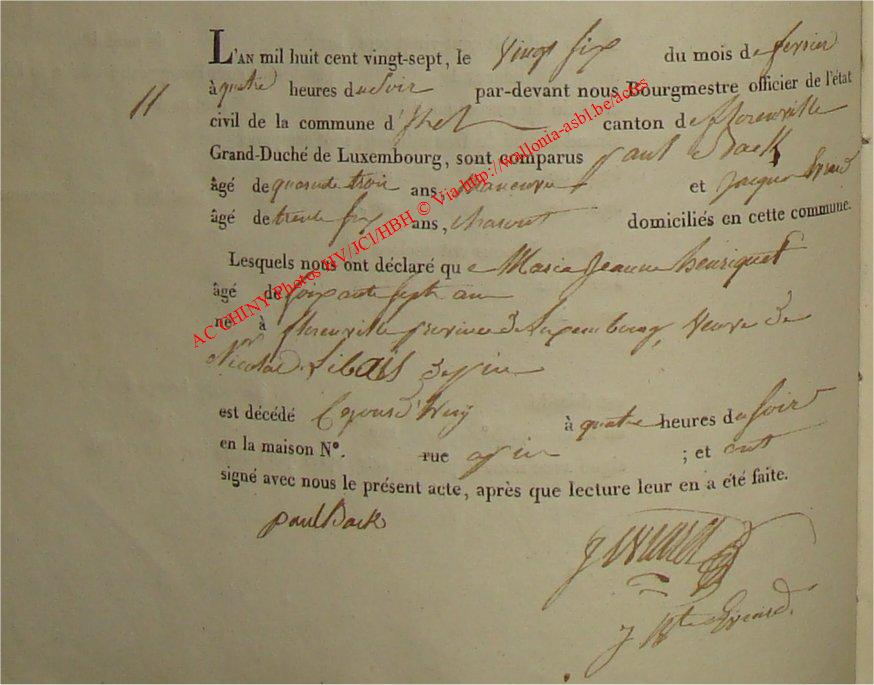 L'AN mil huit cent vingt-sept, le vingt six du mois de fevrier
à quatre heures du Soir par-devant nous Bourgmestre officier de l'état
11
civil de la commune d' canton de florenville
Grand-Duché de Luxembourg, sont comparus paul Back
âgé de quarante trois ans, Manœuvre et Jacque Evrard
âgé de trente six ans, domiciliés en cette commune.
Lesquels nous ont déclaré que Marie Jeanne henriquet
âgé de soixante sept ans
né à florenville province de Luxembourg, veuve de
Nicolas Libois de pin
est décédé à quatre heures du Soir
en la maison N°. rue a pin ; et ont
signé avec nous le présent acte, après que lecture leur en a été faite.
paul Back
J Bte Evrard
AC CHINY Photos HV/JCl/HBH © Via http://wallonia-asbl.be/actes